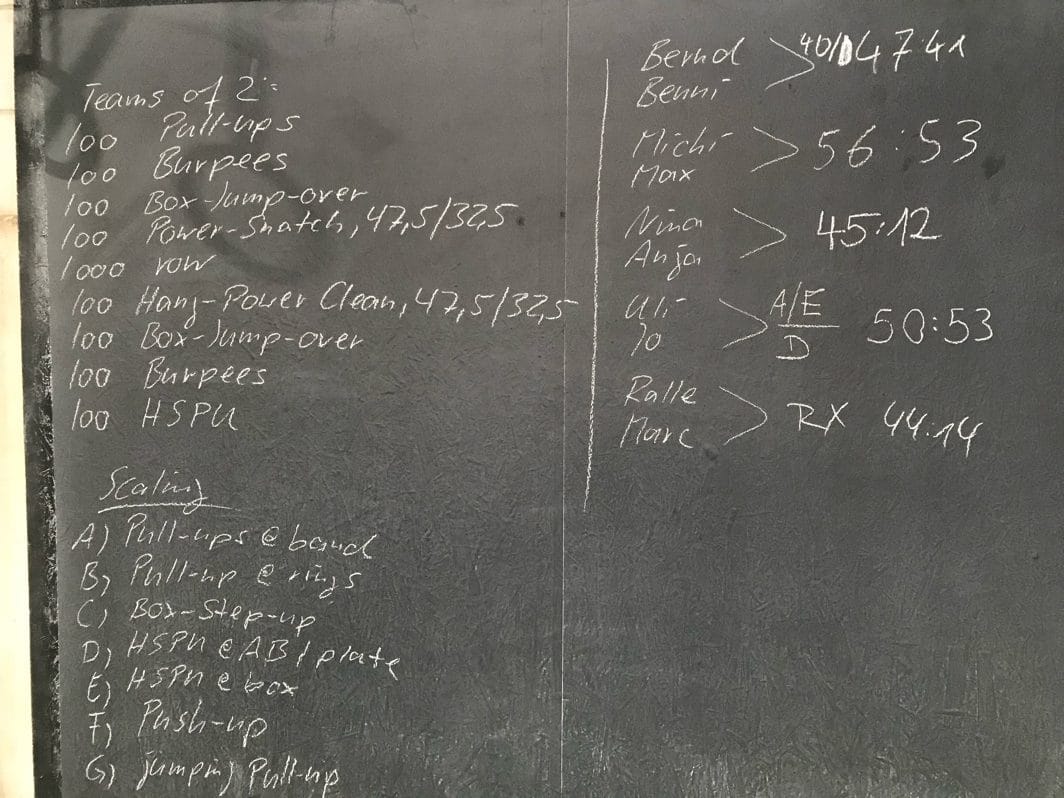 Teams of 2:
100 Pull-ups
100 Burpees
100 Box-Jump-over
100 Power-Snatch, 47,5/32,5
1000 row
100 Hang-Power Clean, 47,5/32,5
100 Box-Jump-over
100 Burpees
100 HSPU
Scaling
A) Pull-ups @ band
B) Pull-up @ rings
C) Box-Step-up
D) HSPU @ AB / plate
E) HSPU @ box
F) Push-up
G) jumping Pull-up
Bernd
Benni
> 40/D 47:41
Michi
Max
> 56:53
Nina
Anja
> 45:12
Uli
Jo
> A/E
D
50:53
Ralle
Marc
> RX 44:14